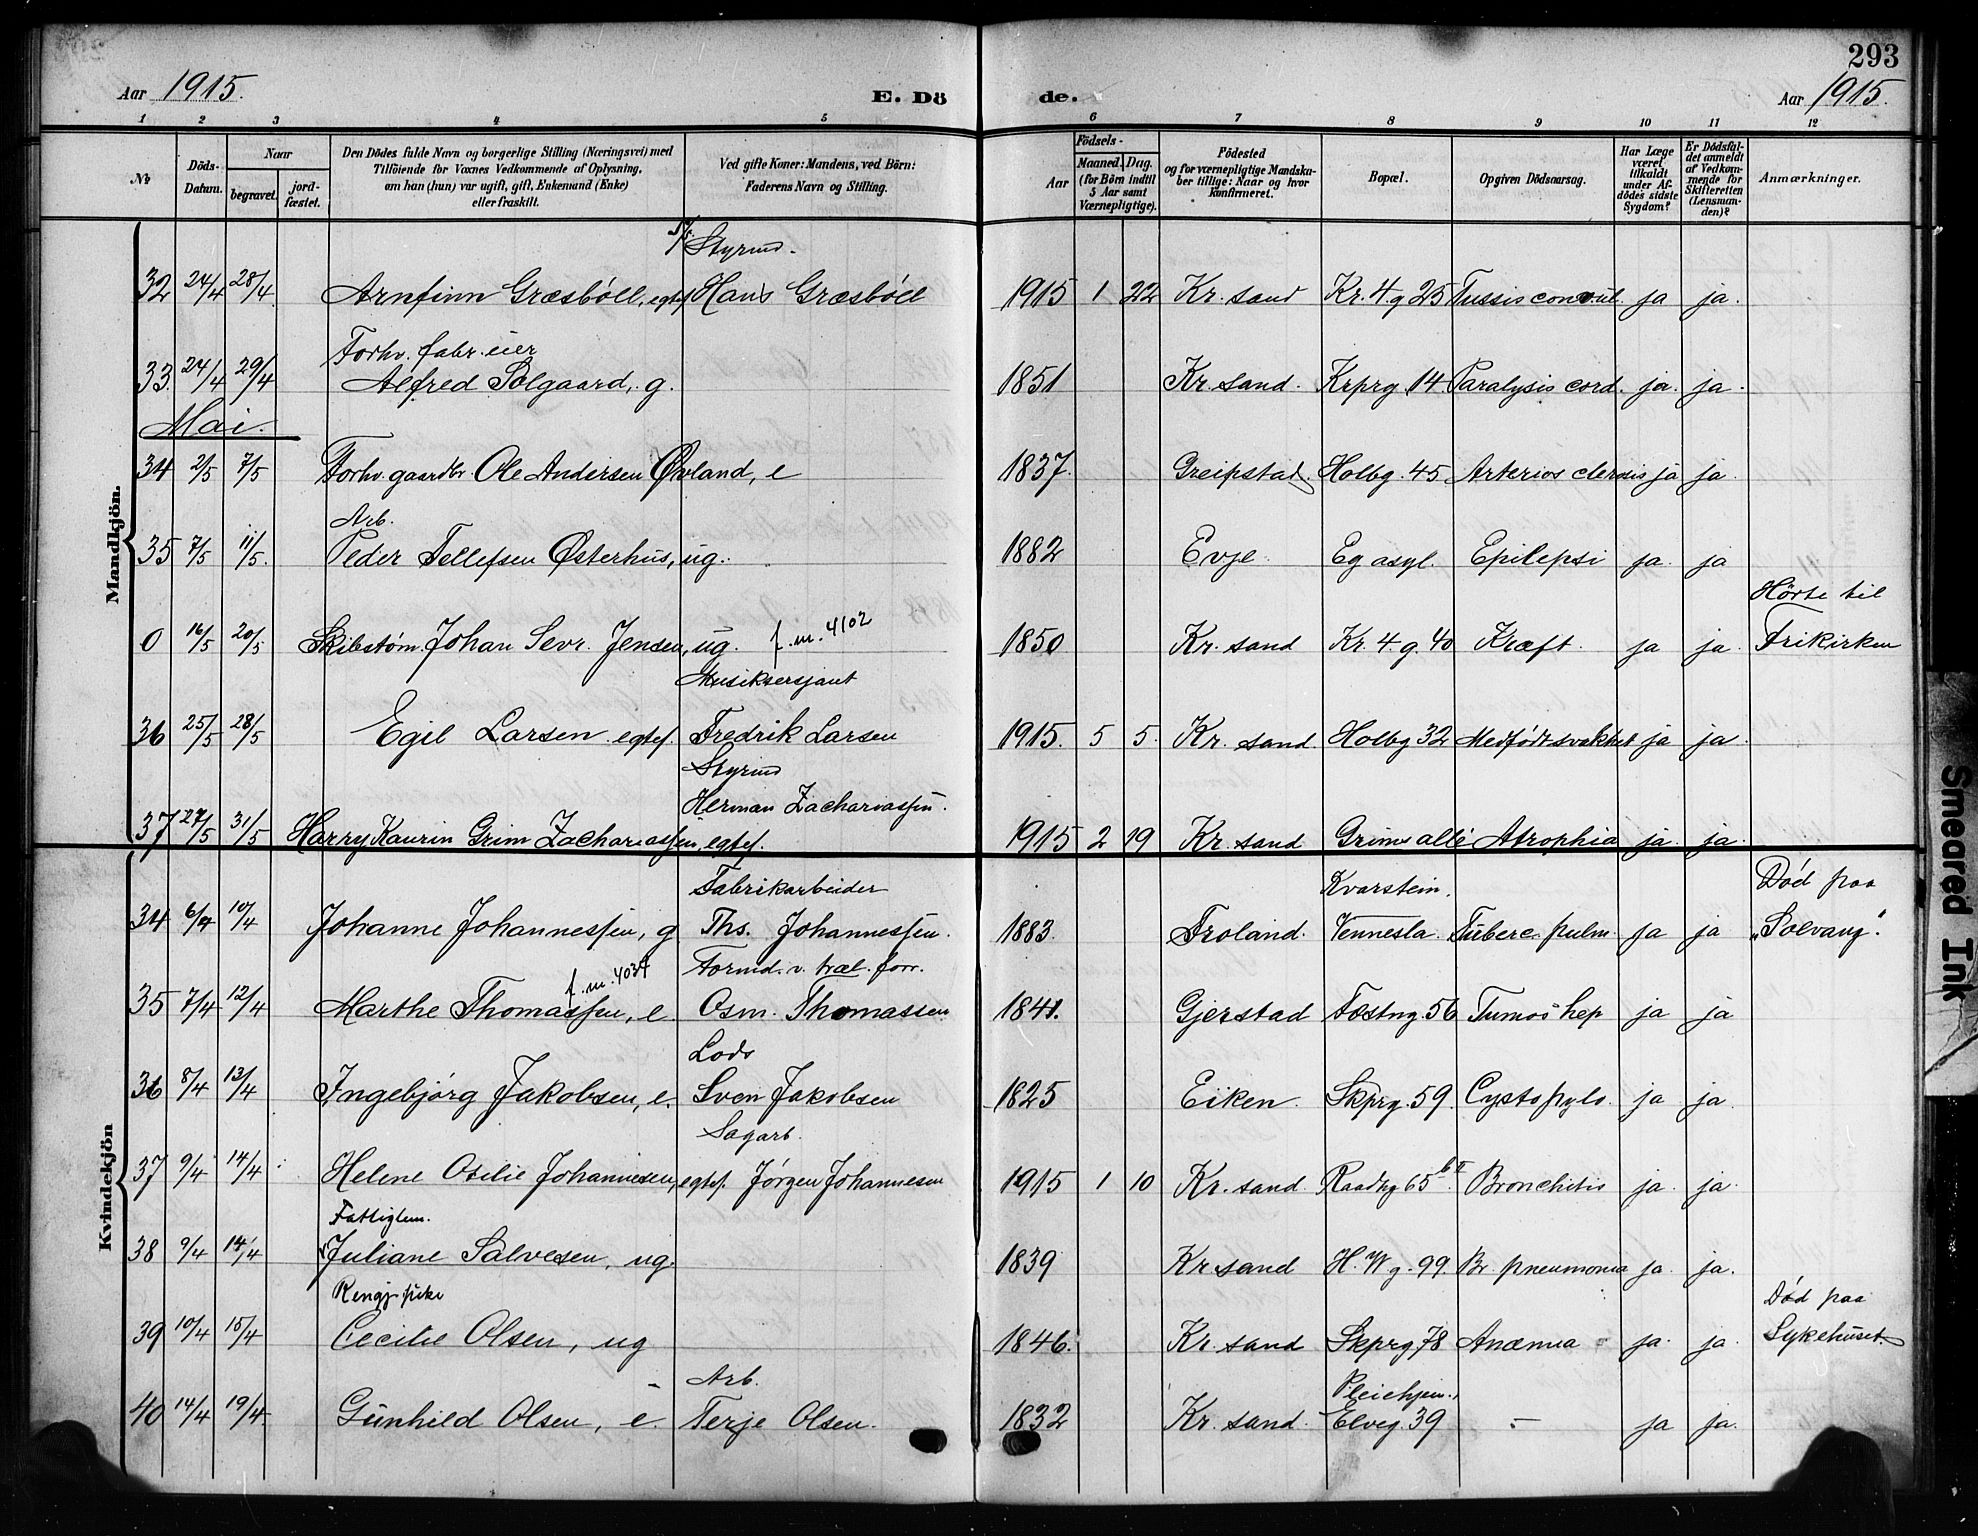 293
Aar 1915.
E. Dö de.
Aar 1915.
1 2 3 4 5 6 7 8 9 10 11 12
No
Döds-Datum.
Naar
begravet.
jord-fæstet.
Den Dödes fulde Navn og borgerlige Stilling (Næringsvei) med
Tilföiende for Voxnes Vedkommende af Oplysning,
om han (hun) var ugift, gift, Enkemand (Enke)
eller fraskilt.
Ved gifte Koner: Mandens, ved Börn:
Faderens Navn og Stilling.
Födsels-
Aar
Maaned. Dag.
(for Börn indtil
5 Aar samt
Værnepligtige).
Födested
og for værnepligtige Mandska-
ber tillige: Naar og hvor
konfirmeret.
Bopæl.
Opgiven Dödsaarsag.
Har Læge
været
tilkaldt
under Af-
dödes sidste
Sygdom?
Er Dödsfal-
det anmeldt
af Vedkom-
mende for
Skifteretten
(Lensman-
den)?
Anmærkninger.
Mandkjön.
Styrmd.
32 24/4 28/4. Arnfinn Græsböll, egtef. Hans Græsböll 1915 1 22 Kr. sand Kr. 4 g 25 Tussis convul. ja ja.
Forhv. fabr. eier
33. 24/4 29/4 Alfred Solgaard, g. 1851 Kr. sand. Krprg 14 Paralysis cord. ja. ja.
Mai.
34 2/5 7/5 Forhv. gaardbr. Ole Andersen Øvland, e 1837. Greipstad. Holbg. 45. Arterios clerosis ja ja.
Arb.
35 7/5 11/5. Peder Tellefsen Østerhus, ug. 1882 Evje. Eg asyl. Epilepsi ja. ja
Hørte til
0 16/5 20/5 Skibstøm. Johan Sevr. Jensen, ug. f. m. 4102 1850 Kr. sand Kr. 4. g. 40 Kræft. ja ja. Frikirken
Musiksersjant
36 25/5 28/5 Egil Larsen egtef. Fredrik Larsen 1915. 5 5. Kr. sand Holbg 32 Medfødt svakhet ja ja.
Styrmd
Herman Zachariassen.
37 27/5 31/5 Harry Kaurin Grim Zachariassen, egtef. 1915 2 19 Kr. sand Grims allé Atrophia ja. ja.
Kvindekjön
Fabrikarbeider Kvarstein. Død paa
34 6/4 10/4 Johanne Johannessen, g Ths. Johannessen. 1883. Froland. Vennesla. Tuberc. pulm. ja ja „Solvang".
f. m. 4037 Formd. v. træl. forr.
35 7/4 12/4 Marthe Thomassen, e. Osm. Thomassen 1841. Gjerstad Fæstng. 56 Tumor hep ja ja
Lods
36 8/4 13/4 Ingebjørg Jakobsen, e. Sven Jakobsen 1825 Eiken. Skprg. 59. Cystopyls. ja ja.
Sagarb.
37 9/4 14/4 Helene Otilie Johannesen, egtef. Jørgen Johannesen 1915 1 10 Kr. sand. Raadhg 65 Bronchitis ja. ja.
Fattiglem.
38 9/4 14/4 Juliane Salvesen, ug. 1839 Kr sand H. W. g. 99. Br. pneumonia ja. ja.
Rengj. pike Død paa
39 10/4 15/4 Cecilie Olsen, ug 1846. Kr. sand Skprg 78 Anæmia ja. ja. Sykehuset.
Arb. Pleiehjem.
40 14/4 19/4 Gunhild Olsen, e. Terje Olsen. 1832 Kr. sand. Elveg. 39 - ja ja.
Smeared Ink